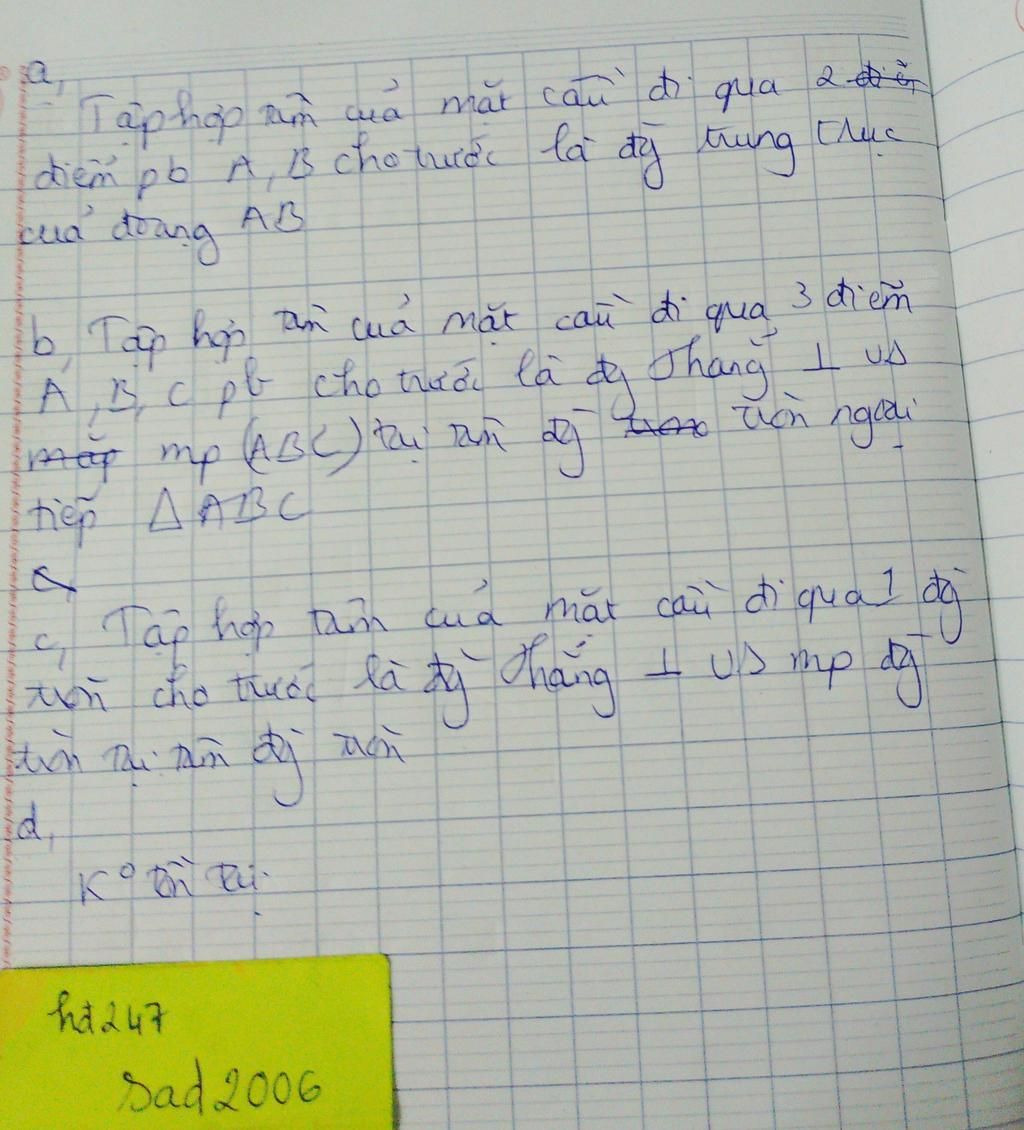 a,
Tập hợp tâm của mặt cầu đi qua 2 điểm
điểm pb A, B cho trước là đg trung trực
của đoạng AB
b, Tập hợp tâm của mặt cầu đi qua 3 điểm
A, B, C pb cho trước là đg thẳng ⊥ vs
mặp mp (ABC) tại tâm đg tròn ngoại
tiếp Δ ABC
c, Tập hợp tâm của mặt cầu đi qua 1 đg
tròn cho trước là đg thẳng ⊥ vs mp đg
tròn tại tâm đg tròn
d,
K° tồn tại.
hd247
Sad2006